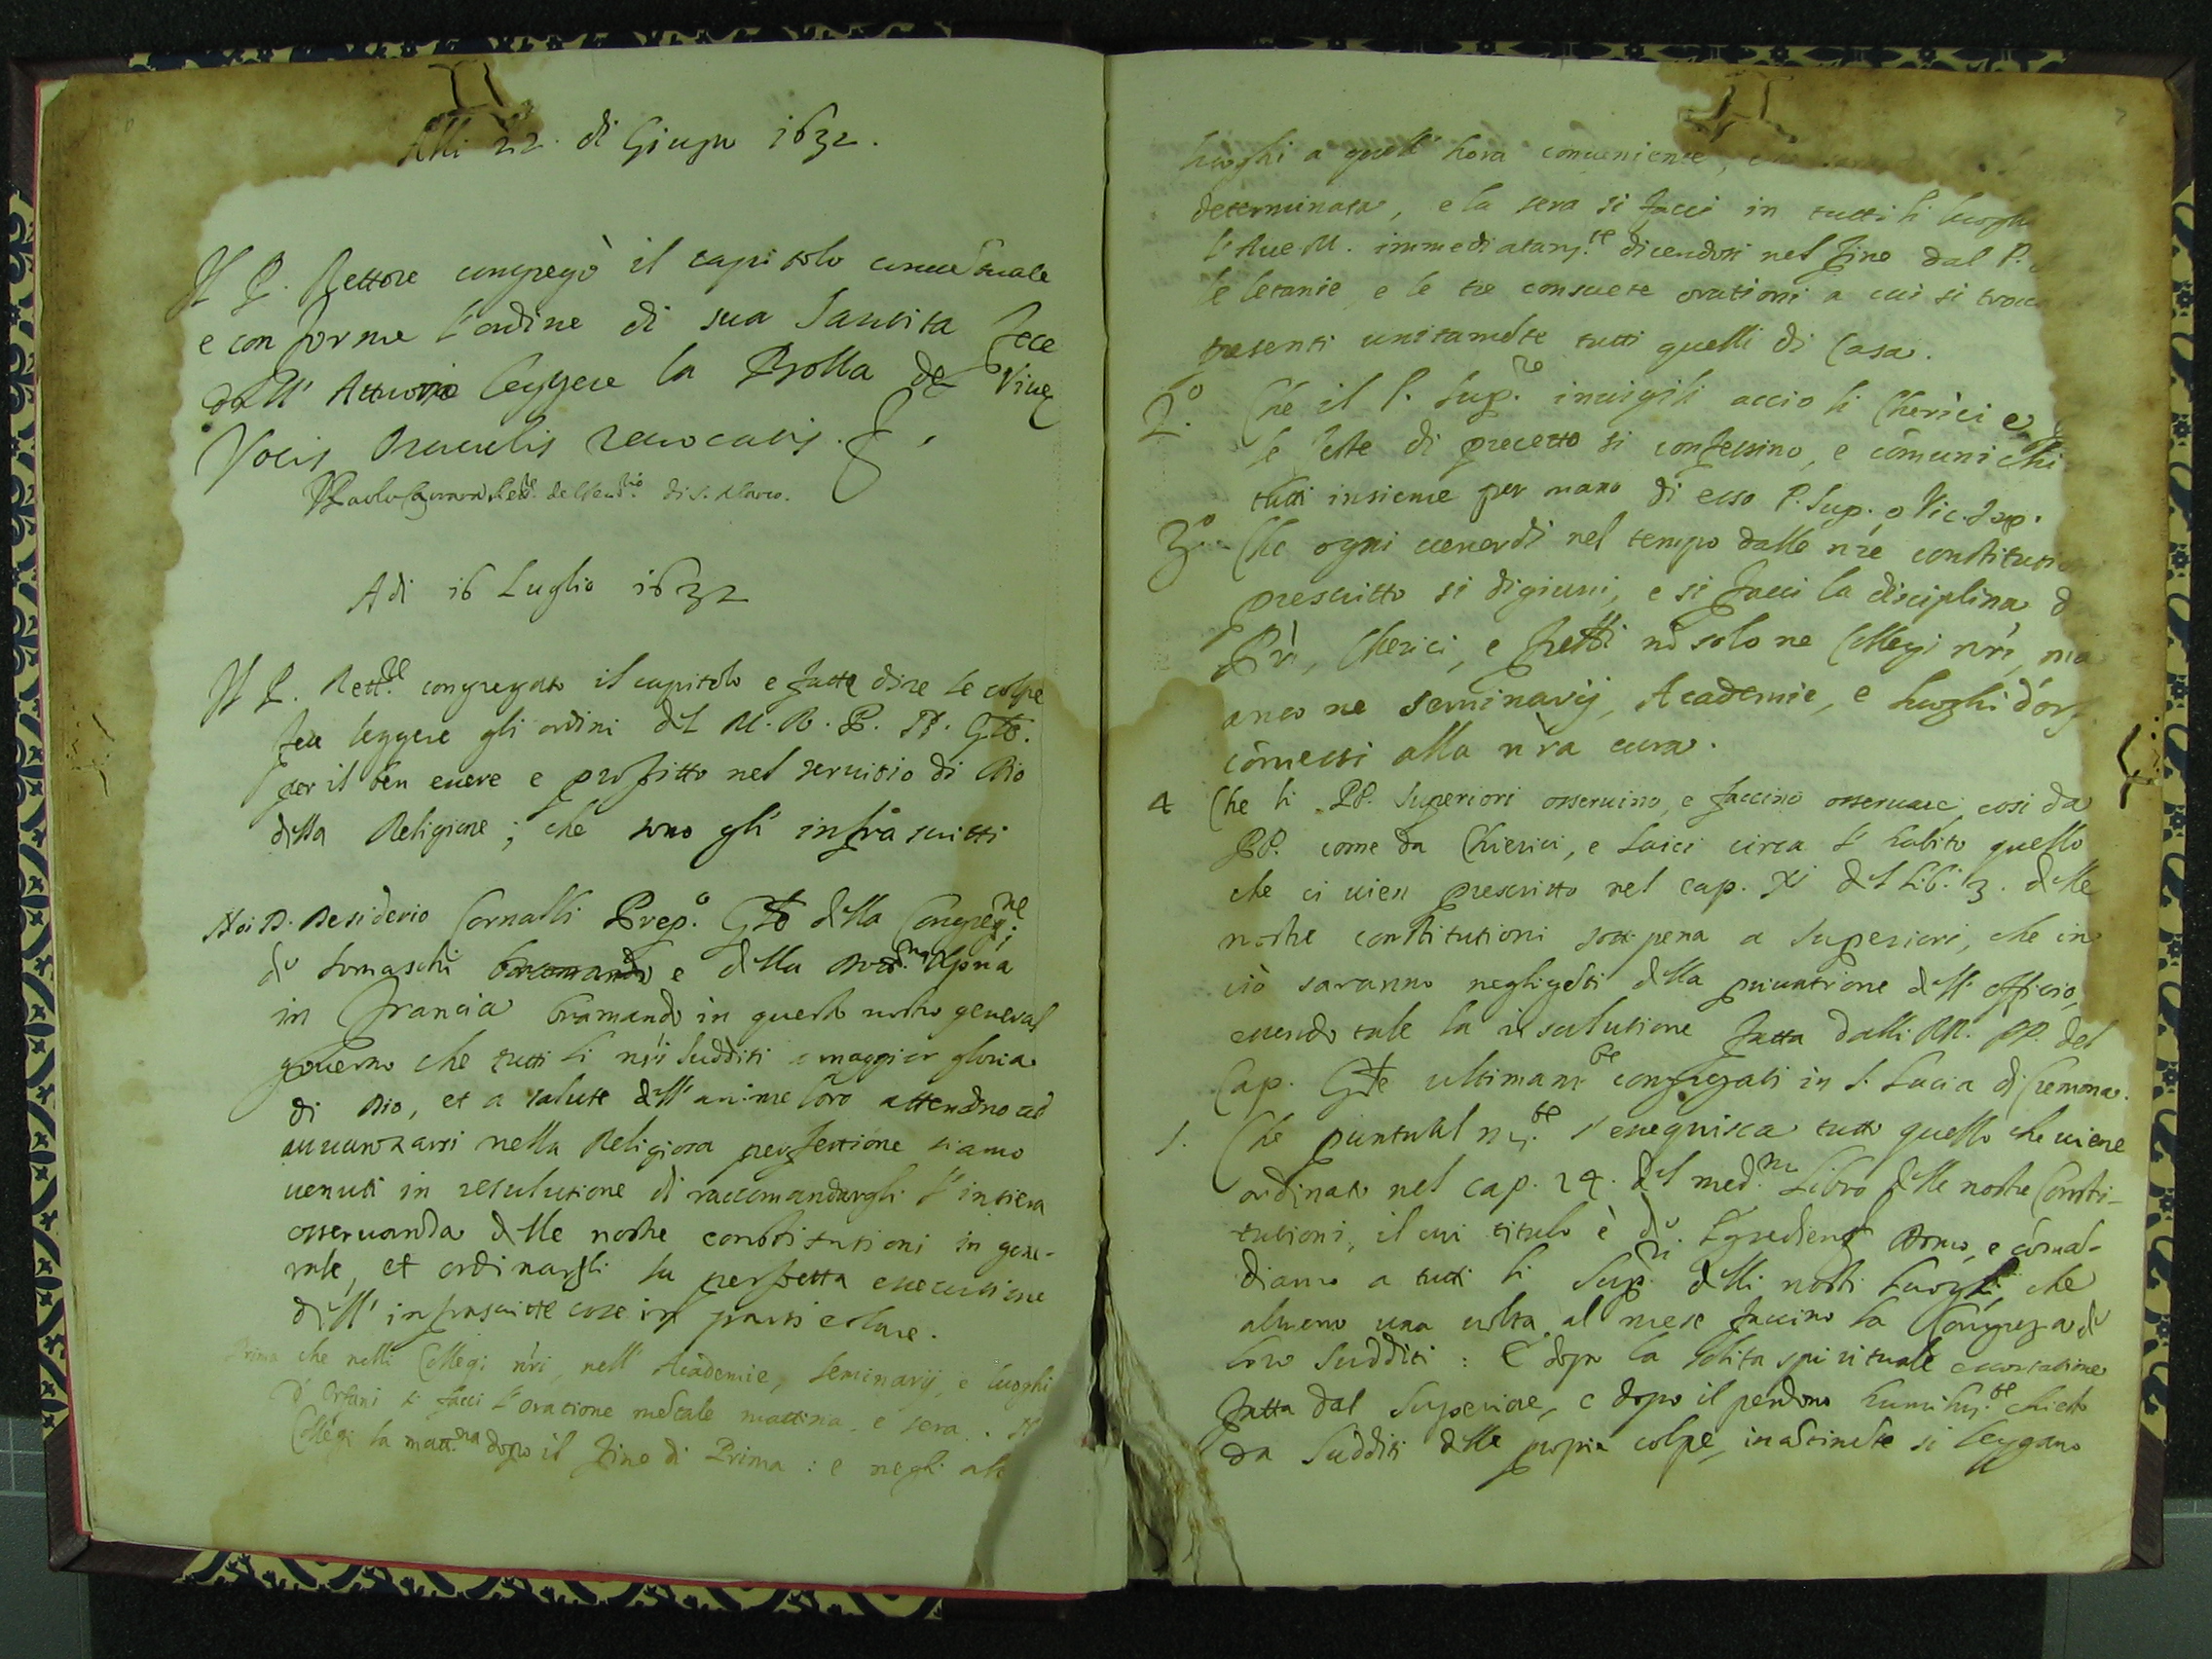 Alli 22. di Giugno 1632.
Il P. Rettore congregò il capitolo conventuale
e conforme l'ordine di sua Santita fece
dall' Attuario leggere la Bolla de Viuę
Vocis Oraculis reuocatis.
Adi 16 Luglio 1632
Il P. Rett.re congregato il capitolo e fatte dire le colpe
fece leggere gli ordini del M. R. P. N. Gñle.
per il ben essere e profitto nel seruitio di Dio
della Religione; che sono gli infrascritti
Noi D. Desiderio Cornalbi Prep.o Gñle della Congreg.ne
di Somascha e della
in Francia bramando in questo nostro general
gouerno che tutti li nr̃i sudditi a maggior gloria
di Dio, et a salute dell' anime loro attendino ad
auuanzarsi nella Religiosa perfettione siamo
uenuti in resolutione di raccomandargli l' intiera
osseruanza delle nostre constitutioni in gene-
rale, et ordinargli la perfetta essecutione
dell' infrascritte cose in particolare.
Prima che nelli Collegi nr̃i, nell' Academie, Seminarij, e luoghi
d' Orfani si facci l' oratione mẽtale mattina e sera.
Collegi la matt.na dopo il fine di Prima: e negli
luoghi a quell' hora conueniente, che
determinata, e la sera si facci in tutti li luoghi
l'Aue M. immediatam.te dicendosi nel fine dal P.
le letanie e le tre consuete orationi a cui si
presenti unitamẽte tutti quelli di Casa.
2.o Che il P. Sup.re inuigili accio li Cherici e
le feste di precetto si confessino, e comunichi
tutti insieme per mano di esso P. Sup. o Vic. Sup.
3.o Che ogni uenerdi nel tempo dalle nr̃e constitutioni
prescritto si digiuni, e si facci la disciplina
Pr̃i, Cherici, e frẽlli nõ solo ne Collegi nr̃i, ma
anco ne Seminarij, Academie, e luoghi d'orf.
com̃essi alla nr̃a cura.
4 Che li PP. Superiori osseruino, e faccino osseruare cosi da
PP. come da Chierici, e Laici circa l' habito quello
che ci uien prescritto nel cap. XI del Lib. 3. delle
nostre constitutioni sotto pena a Superiori, che in
ciò saranno negligẽti della priuatione dell' officio,
essendo tale la risolutione fatta dalli RR. PP. del
Cap. Gñle ultimam.te congregati in S. Lucia di Cremona.
5. Che puntualm.te s' esseguisca tutto quello che uiene
ordinato nel cap. 24. del med.mo Libro delle nostre Consti-
tutioni, il cui titulo è de Egredient. Domo, e comã-
diamo a tutti li Sup.ri delli nostri luoghi, che
almeno una uolta al mese faccino la Congreg. de
loro Sudditi: E dopo la solita spirituale essortatione
fatta dal Superiore, e dopo il perdono humilm.te chiesto
da Sudditi delle proprie colpe, si leggano